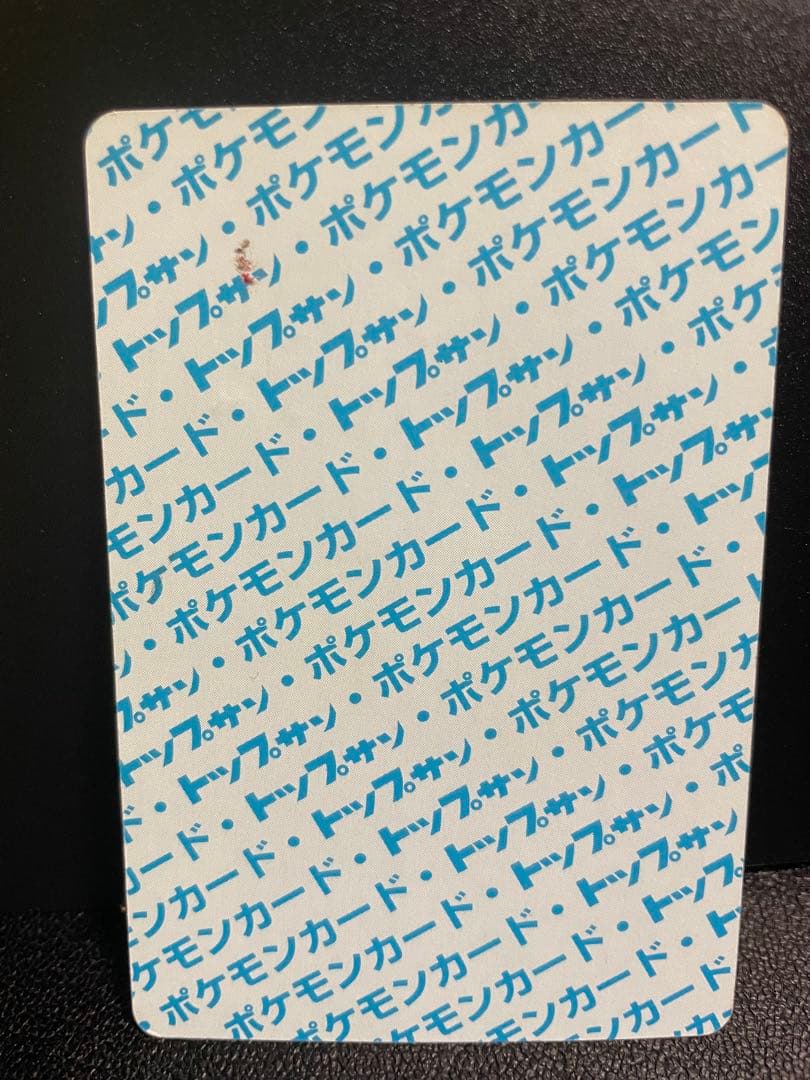 ポケモ
・ポケモン
ン・ポケモンカ
トップサン・ポケモンカード
トップサン・ポケモンカード
トップサン・ポケモンカード
ド・トップサン・ポケモンカ
カード・トップサン・ポケモン
モンカード・トップサン・ポケ
ポケモンカード・トップサン・
・ポケモンカード・トップサン
トップサン・ポケモンカード・トップ
トップサン・ポケモンカード・
ド・トップサン・ポケモンカード
カード・トップサン・ポケモンカ
ンカード・トップサン・ポケモ
ケモンカード・トップサン・ポ
・ポケモンカード・トップサン
ポケモンカード・トップ
ポケモンカード・ト
ポケモンカード